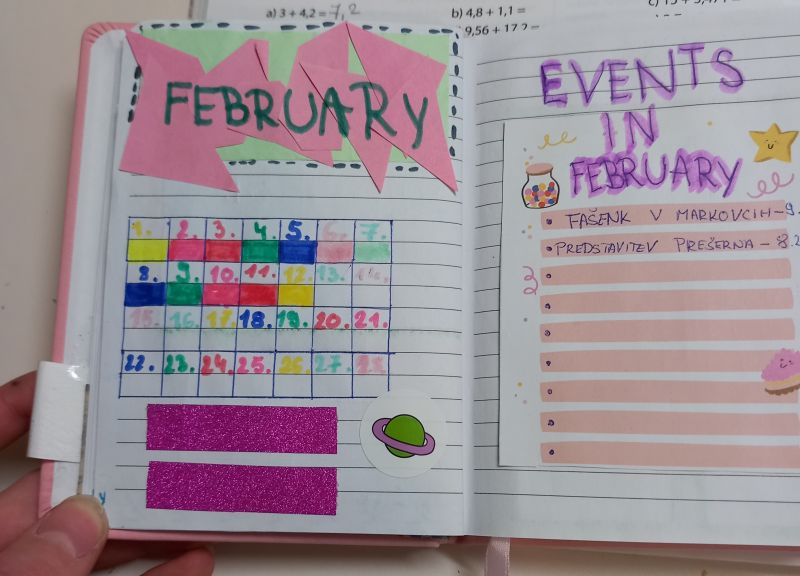 a) 3 + 4,2 = 7,2
b) 4,8 + 1,1 =
9,56 + 17,2 =
FEBRUARY
1. 2. 3. 4. 5. 6. 7.
8. 9. 10. 11. 12. 13. 14.
15. 16. 17. 18. 19. 20. 21.
22. 23. 24. 25. 26. 27. 28.
EVENTS
IN
FEBRUARY
• FAŠENK V MARKOVCIH - 9.
• PREDSTAVITEV PREŠERNA - 8.2